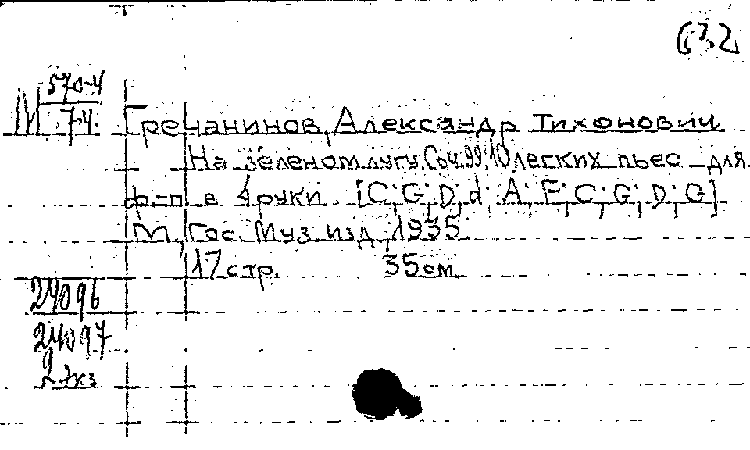 63.2
М 570-4
7-4.
Гречанинов, Александр Тихонович
На зеленом лугу. Соч. 99; 10 легких пьес для
ф-п в 4 руки [C; G; D; d; A; F; C; G; D; G]
М., Гос. Муз. изд., 1935.
17 стр. 35 см.
24096
24097
2 экз